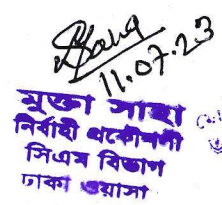 11.07.23
মুক্তা সাহা
নির্বাহী প্রকৌশলী
সিএম বিভাগ
ঢাকা ওয়াসা